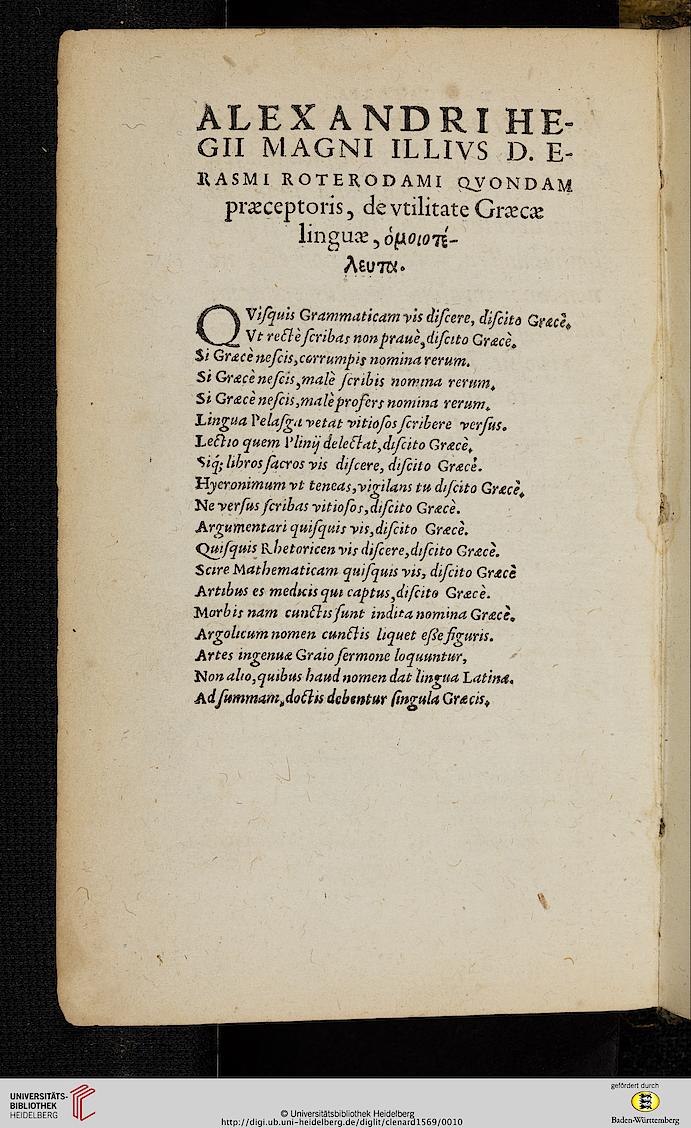 ALEXANDRI HE-
GII MAGNI ILLIVS D. E-
RASMI ROTERODAMI QVONDAM
præceptoris, de vtilitate Græcæ
linguæ, ὁμοιοτέ-
λευτα.
QViſquis Grammaticam vis diſcere, diſcito Græcè.
Vt rectè ſcribas non prauè, diſcito Græcè.
Si Græcè neſcis, corrumpis nomina rerum.
Si Græcè neſcis, malè ſcribis nomina rerum.
Si Græcè neſcis, malè profers nomina rerum.
Lingua Pelaſga vetat vitioſos ſcribere verſus.
Lectio quem Plinij delectat, diſcito Græcè.
Siq; libros ſacros vis diſcere, diſcito Græcè.
Hyeronimum vt teneas, vigilans tu diſcito Græcè.
Ne verſus ſcribas vitioſos, diſcito Græcè.
Argumentari quiſquis vis, diſcito Græcè.
Quiſquis Rhetoricen vis diſcere, diſcito Græcè.
Scire Mathematicam quiſquis vis, diſcito Græcè
Artibus es medicis qui captus, diſcito Græcè.
Morbis nam cunctis ſunt indita nomina Græcè.
Argolicum nomen cunctis liquet eße figuris.
Artes ingenuæ Graio ſermone loquuntur,
Non alio, quibus haud nomen dat lingua Latina.
Ad ſummam, doctis debentur ſingula Græcis.
UNIVERSITÄTS-
BIBLIOTHEK
HEIDELBERG
© Universitätsbibliothek Heidelberg
http://digi.ub.uni-heidelberg.de/diglit/clenard1569/0010
gefördert durch
Baden-Württemberg